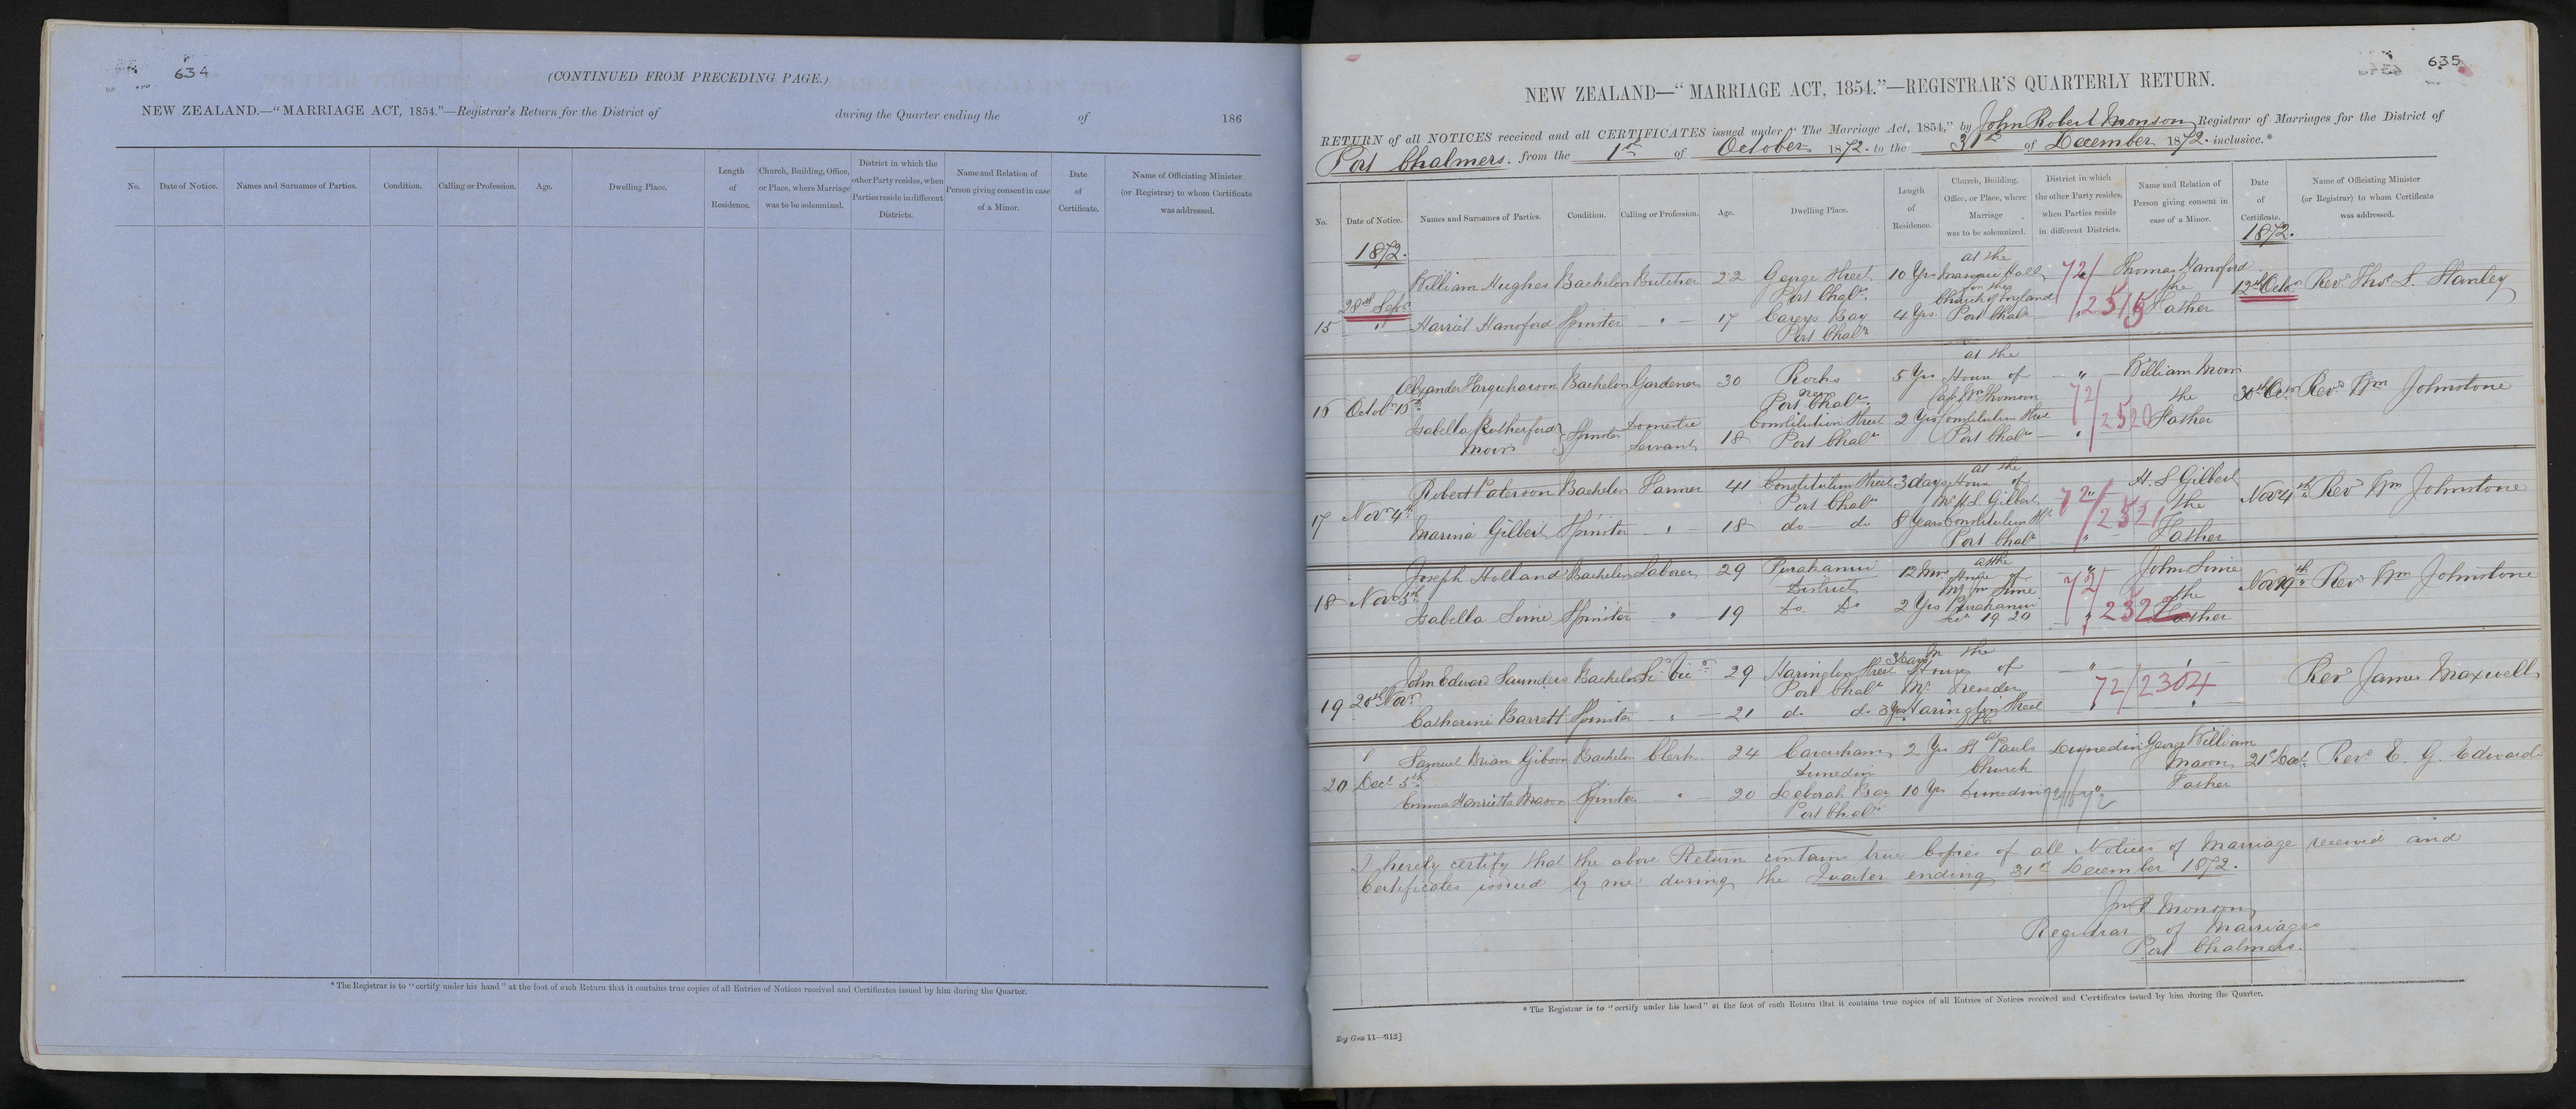 634
(CONTINUED FROM PRECEDING PAGE.)
NEW ZEALAND.—"MARRIAGE ACT, 1854."—Registrar's Return for the District of during the Quarter ending the of 186
No. Date of Notice. Names and Surnames of Parties. Condition. Calling or Profession. Age. Dwelling Place. Length of Residence. Church, Building, Office, or Place, where Marriage was to be solemnized. District in which the other Party resides, when Parties reside in different Districts. Name and Relation of Person giving consent in case of a Minor. Date of Certificate. Name of Officiating Minister (or Registrar) to whom Certificate was addressed.
* The Registrar is to "certify under his hand" at the foot of each Return that it contains true copies of all Entries of Notices received and Certificates issued by him during the Quarter.
635
NEW ZEALAND—"MARRIAGE ACT, 1854."—REGISTRAR'S QUARTERLY RETURN.
RETURN of all NOTICES received and all CERTIFICATES issued under "The Marriage Act, 1854," by John Robert Monson Registrar of Marriages for the District of
Port Chalmers. from the 1st of October 1872. to the 31st of December 1872. inclusive.*
No. Date of Notice. Names and Surnames of Parties. Condition. Calling or Profession. Age. Dwelling Place. Length of Residence. Church, Building, Office, or Place, where Marriage was to be solemnized. District in which the other Party resides, when Parties reside in different Districts. Name and Relation of Person giving consent in case of a Minor. Date of Certificate. Name of Officiating Minister (or Registrar) to whom Certificate was addressed.
1872. 1872.
at the
William Hughes Bachelor Butcher 22 George Street 10 Yrs Masonic Hall 72/ Thomas Hansford
28th Sepr Port Chalrs. Church of England 2515 the 12th Octr Revd Thos L. Stanley
15 " Harriet Hansford Spinster " 17 Careys Bay 4 Yrs. Port Chalrs " Father
Port Chalrs
at the
Alexander Farquharson Bachelor Gardener 30 Rocks 5 Yrs House of " William Moir
16 Octobr 15th near Port Chalrs. Capt Wm Thomson 72/ the 30th Octr Revd Wm Johnstone
Isabella Rutherford Spinster Domestic Constitution Street 2 Yrs Constitution Street 2520 Father
Moir Servant 18 Port Chalrs Port Chalrs "
at the
Robert Paterson Bachelor Farmer 41 Constitution Street 3 days House of " H. S Gilbert
17 Novr 4th Port Chalrs Mr H S Gilbert 72/ the Novr 4th Revd Wm Johnstone
Marina Gilbert Spinster " 18 do do 8 Years Constitution St 2521 Father
Port Chalrs "
at the
Joseph Holland Bachelor Laborer 29 Purakanui 12 Mos House of " John Sime
18 Novr 5th District Mr Jn Sime 72/ the Novr 19th Revd Wm Johnstone
Isabella Sime Spinster " 19 Do Do 2 Yrs Purakanui 2522 Father
Sec 19. 20 "
John Edward Saunders Bachelor Lic Vicr 29 Harington Street 3 Days In the House of "
19 20th Novr Port Chalrs Mr 72/2304 Revd James Maxwell
Catherine Barrett Spinster " 21 do do 3 Yrs Harington Street "
Samuel Brian Gibson Bachelor Clerk 24 Caversham 2 Yrs at St Pauls Dunedin George William
20 Decr 5th Dunedin Church Mason 21st Decr. Revd E. G. Edwards
Emma Henrietta Mason Spinster " 20 Deborah Bay 10 Yrs Dunedin " Father
Port Chalrs
I hereby certify that the above Return contains true Copies of all Notices of Marriage received and
Certificates issued by me during the Quarter ending 31st December 1872.
Jno R Monson
Registrar of Marriages
Port Chalmers.
* The Registrar is to "certify under his hand" at the foot of each Return that it contains true copies of all Entries of Notices received and Certificates issued by him during the Quarter.
Reg Gen 11—312]